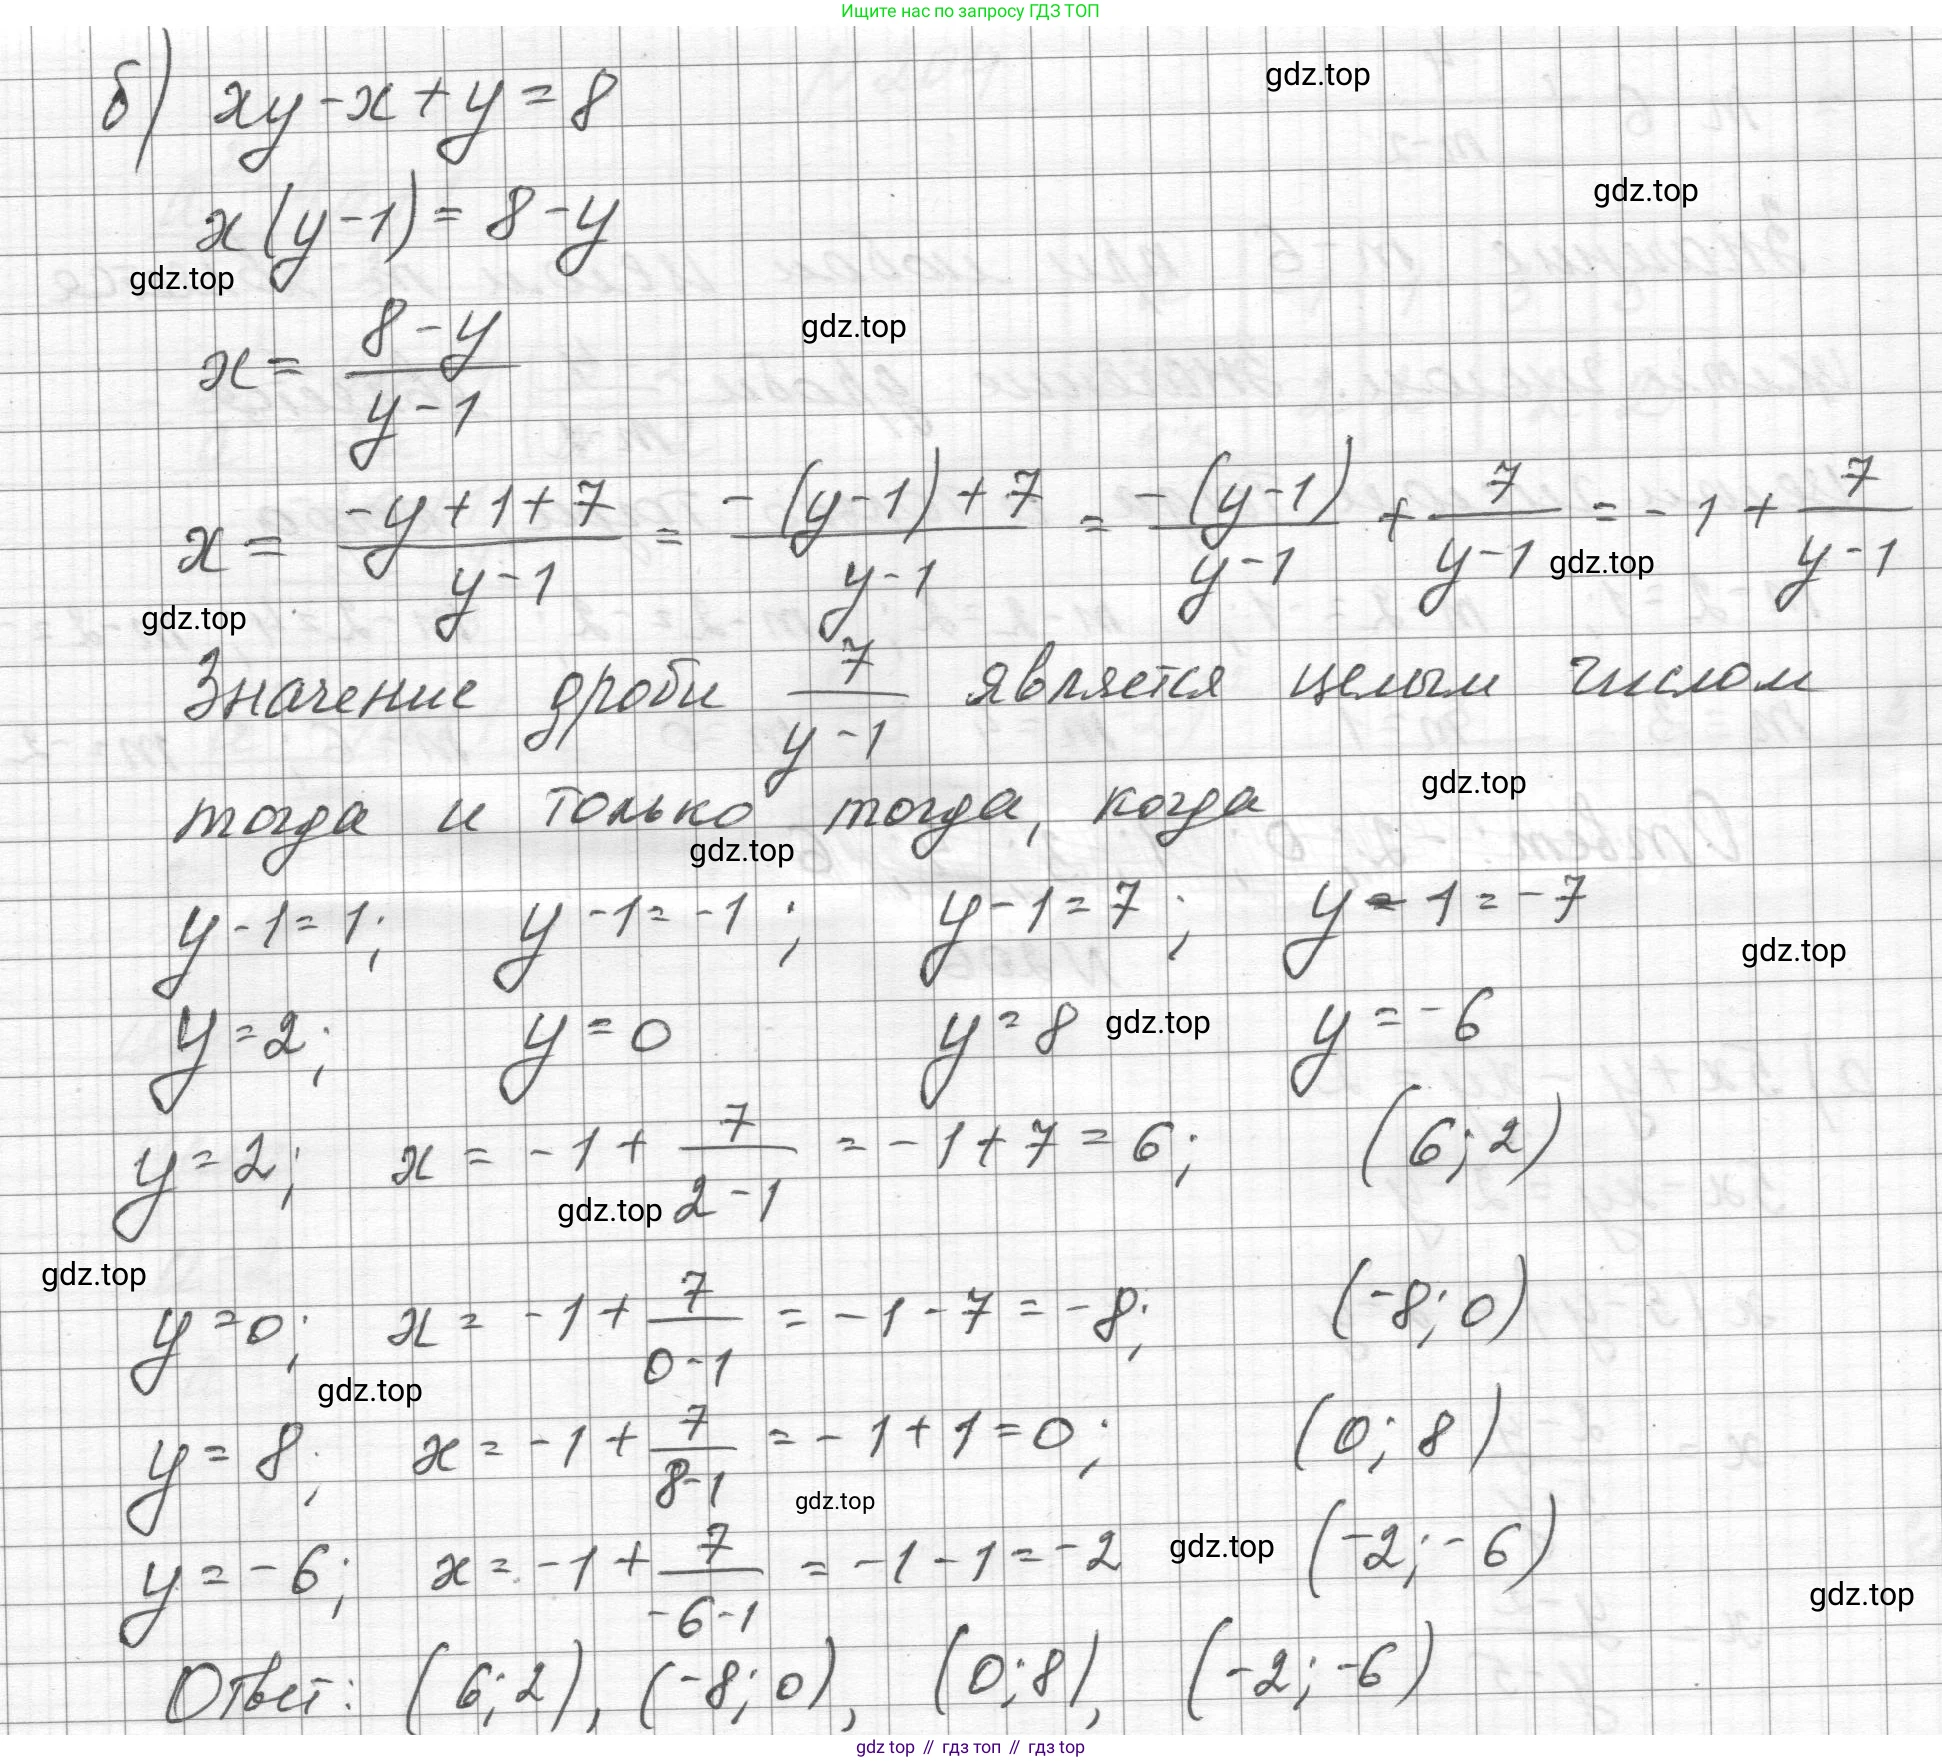 Ищите нас по запросу ГДЗ ТОП
б) xy - x + y = 8
gdz.top
x(y-1) = 8 - y
gdz.top
gdz.top
x = (8-y)/(y-1)
gdz.top
x = (-y+1+7)/(y-1) = (-(y-1)+7)/(y-1) = -(y-1)/(y-1) + 7/(y-1) = -1 + 7/(y-1)
gdz.top
gdz.top
Значение дроби 7/(y-1) является целым числом
тогда и только тогда, когда
gdz.top
gdz.top
y-1=1; y-1=-1; y-1=7; y-1=-7
gdz.top
y=2; y=0 y=8 y=-6
gdz.top
y=2; x = -1 + 7/(2-1) = -1+7=6; (6;2)
gdz.top
gdz.top
y=0; x = -1 + 7/(0-1) = -1-7=-8; (-8;0)
gdz.top
y=8; x = -1 + 7/(8-1) = -1+1=0; (0;8)
gdz.top
y=-6; x = -1 + 7/(-6-1) = -1-1=-2 (-2;-6)
gdz.top
gdz.top
Ответ: (6;2), (-8;0), (0;8), (-2;-6)
gdz top // гдз топ // гдз top